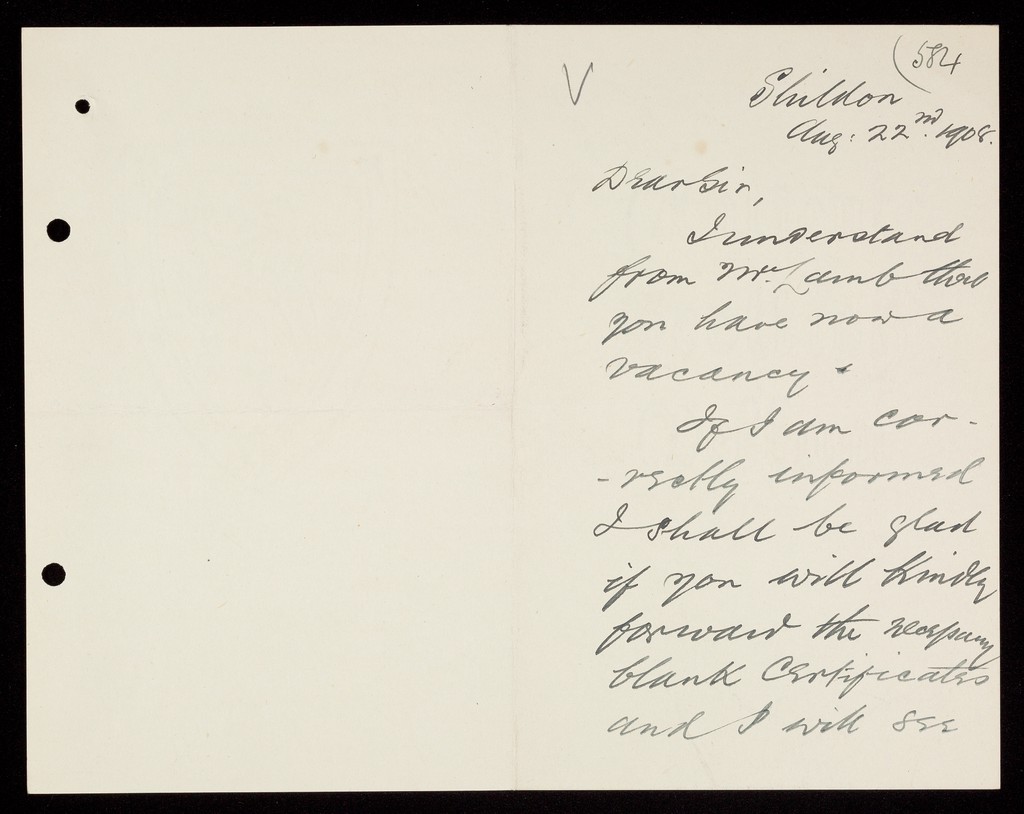 (584
V
Shildon
Aug: 22nd. 1908.
Dear Sir,
I understand
from Mr. Lamb that
you have now a
vacancy.
If I am cor-
-rectly informed
I shall be glad
if you will kindly
forward the necessary
blank Certificates
and I will see